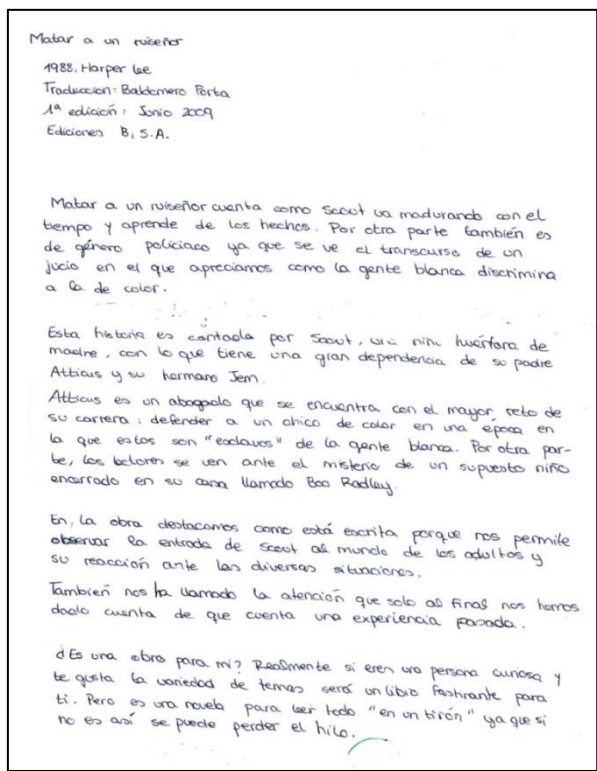 Matar a un ruiseñor
1988, Harper Lee
Traducción: Baldomero Porta
1ª edición: Junio 2009
Ediciones B, S.A.
Matar a un ruiseñor cuenta como Scout va madurando con el
tiempo y aprende de los hechos. Por otra parte también es
de género policiaco ya que se ve el transcurso de un
jucio en el que apreciamos como la gente blanca discrimina
a la de color.
Esta historia es contada por Scout, una niña huérfana de
madre, con lo que tiene una gran dependencia de su padre
Atticus y su hermano Jem.
Atticus es un abogado que se encuentra con el mayor reto de
su carrera: defender a un chico de color en una época en
la que estos son "esclavos" de la gente blanca. Por otra par-
te, los lectores se ven ante el misterio de un supuesto niño
encerrado en su casa llamado Boo Radley.
En, la obra destacamos como está escrita porque nos permite
observar la entrada de Scout al mundo de los adultos y
su reacción ante las diversas situaciones.
También nos ha llamado la atención que solo al final nos hemos
dado cuenta de que cuenta una experiencia pasada.
¿Es una obra para mi? Realmente si eres una persona curiosa y
te gusta la variedad de temas será un libro fascinante para
ti. Pero es una novela para leer todo "en un tirón" ya que si
no es así se puede perder el hilo.